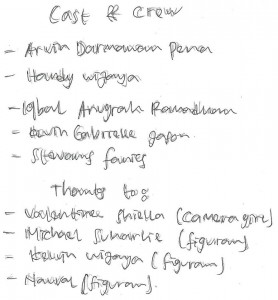 Cast & Crew
- Arwin Darmawan Pena
- Handy wijaya
- Iqbal Anugrah Ramadhan
- Kevin Gabrielle
- Stevanus
Thanks to:
- Shiella (Camera girl)
- Michael Suharlie (figuran)
- Kelvin wijaya (figuran)
- Nauval (figuran).